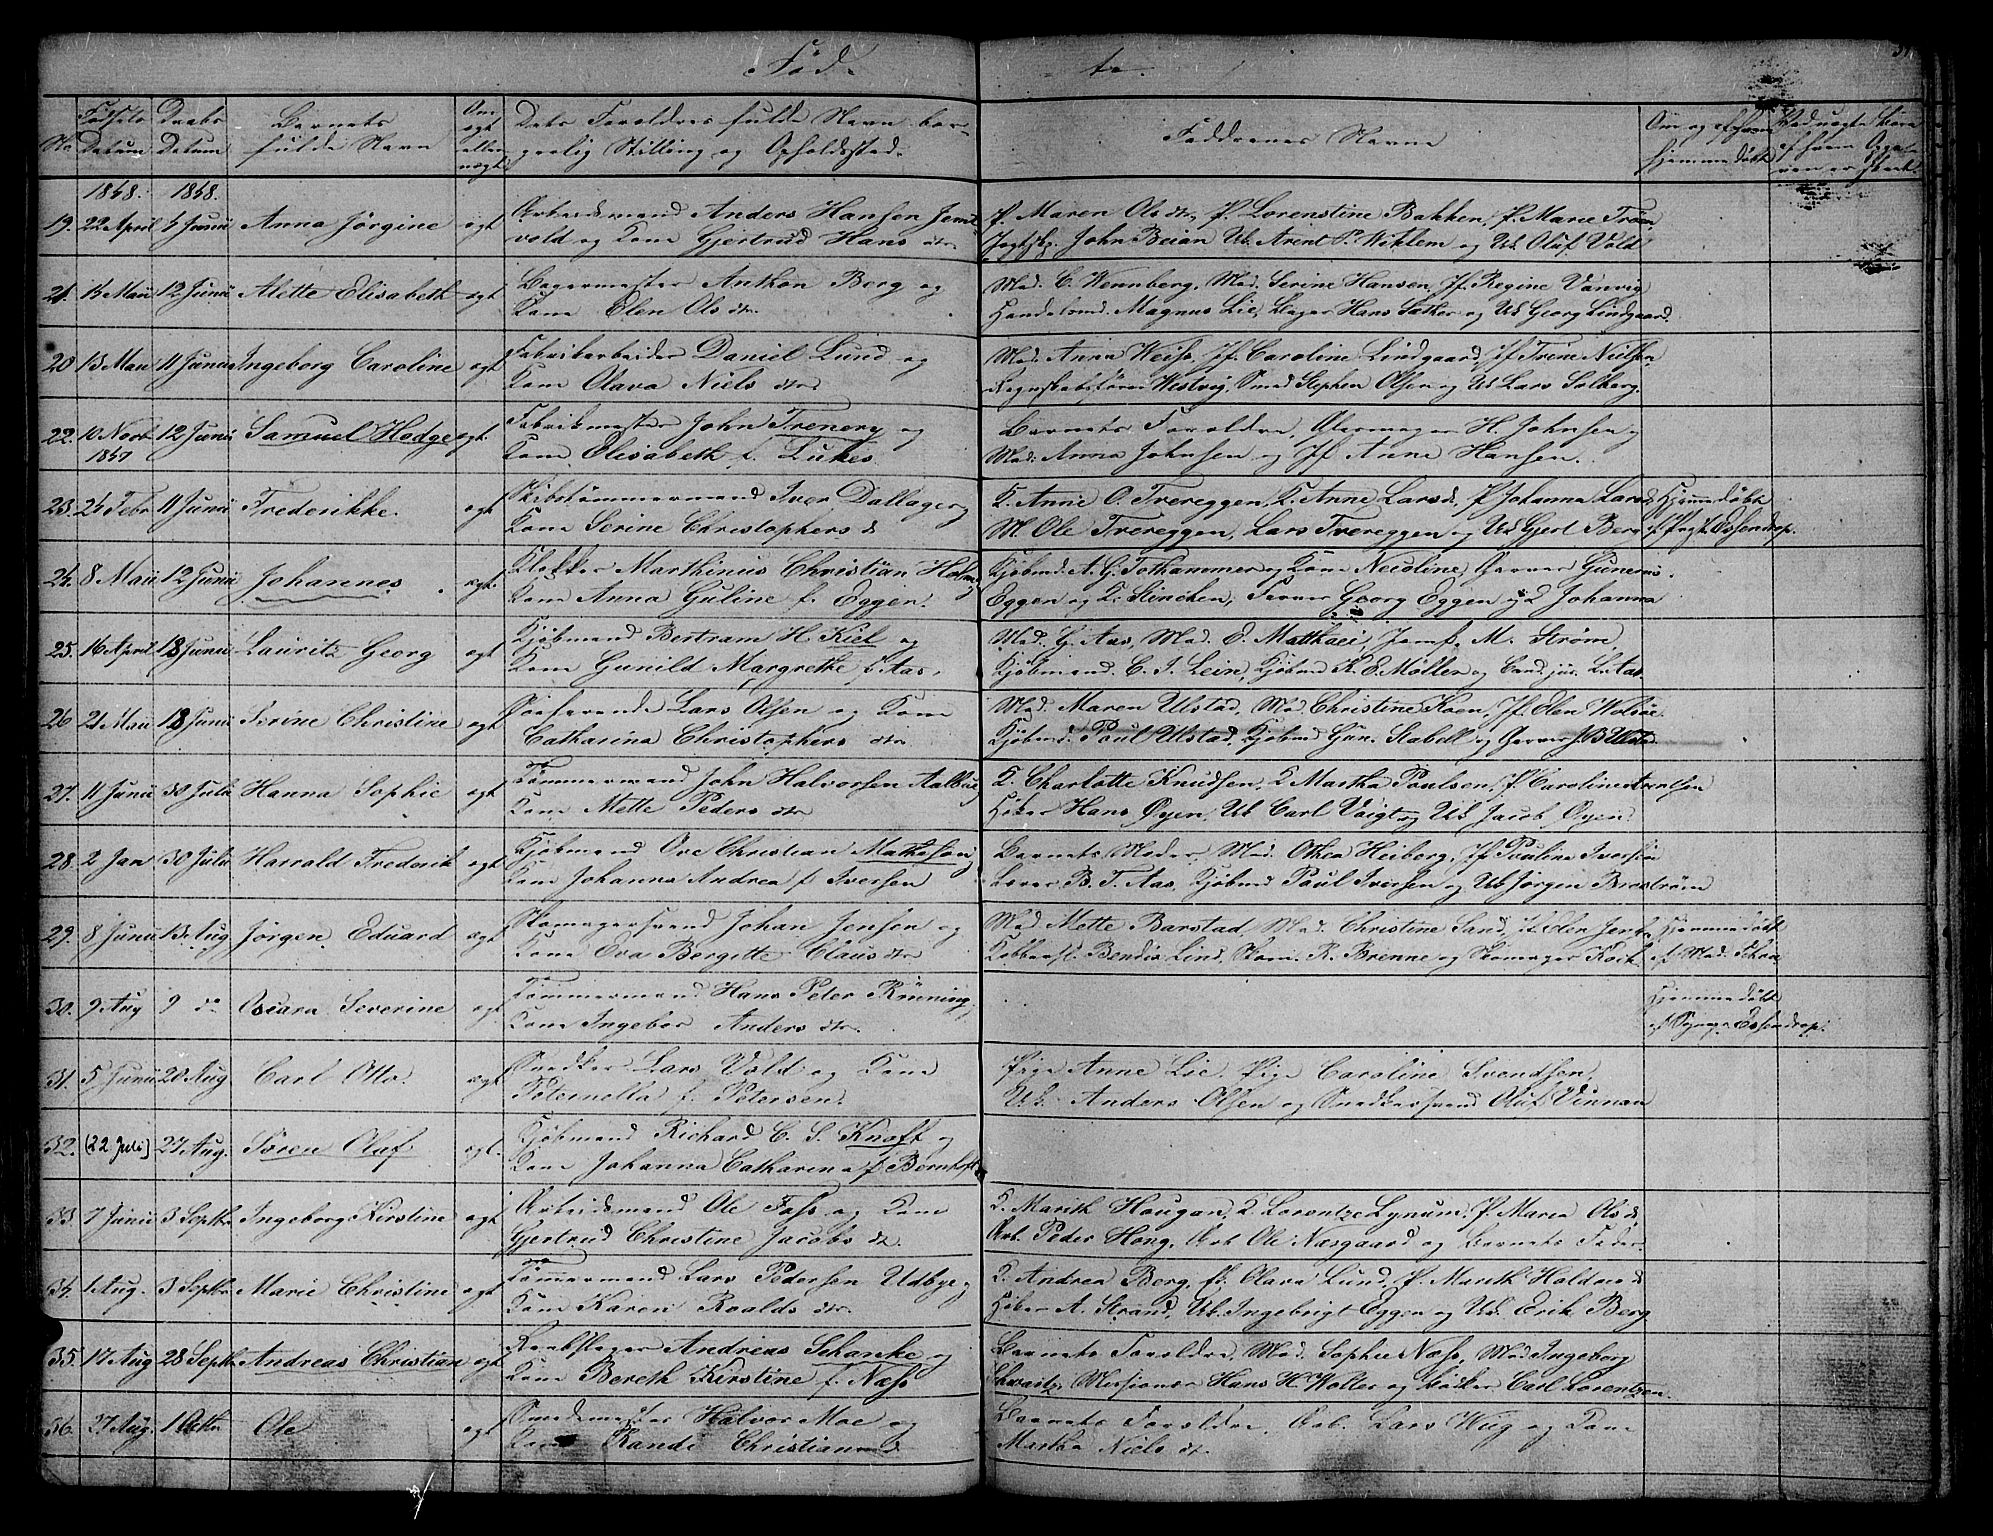 Fød-
te
No.
Fødsels Datum
Daabs Datum
Barnets fulde Navn
Om ægte eller uægte
Dets Forældres fulde Navn bor-
gerlig Stilling og Opholdssted.
Faddernes Navne
Om og af hvem hjemmedøbt
1848. 1848.
19. 22 April 4 Junii Anna Jørgine ægt Arbeidsmand Anders Hansen
vold og Kone Gjertrud Hans dtr
P. Maren Ols dtr, P. Lorenstine Bakken, P. Marie Trøm
John Beian Uk. Arint P. Wiklem og Uk Oluf Vold
21. 15 Maii 12 Junii Alette Elisabeth ægt Bagermester Anthon Berg og
Kone Elen Ols dtr.
Mad. C. Wennberg, Mad. Serine Hansen, Jf. Regine Vanvig
Handelsmd. Magnus Lie, Bager Hans Sæther og Uk Georg Lindgaard.
20 13 Maii 11 Junii Ingeborg Caroline ægt Fabrikarbeider Daniel Lund og
Kone Olava Niels dtr
Mad. Anna Weiss, Jf. Caroline Lindgaard, Jf Trine Nielsen
Regnskabsfører Westvig, Smed Stephen Olsen og Uk Lars Solberg.
22. 10 Novb 1847 12 Junii Samuel Hodge ægt. Fabrikmester John Trenery og
Kone Elisabeth f. Lukes
Barnets Forældre, H. Johnsen og
Mad: Anna Johnsen og Jf Anne Hansen.
23. 24 Febr 11 Junii Frederikke. ægt Skibstømmermand Iver Dallager og
Kone Serine Christophers d
K. Anne O. Tvereggen, K. Anne Larsd, P. Johanna Larsd
M. Ole Tvereggen, Lars Tvereggen og Uk Gjert Berg
Hjemmedøbt
af Pogt Essendrop.
24. 8 Maii 12 Junii Johannes ægt. Klokker Marthinus Christian Holm og
Kone Anna Guline f. Eggen.
Kjøbmd. A. G. Tothammer og Kone Nicoline, Garver Gunerus
Eggen og K. Stinchen, Farver Georg Eggen og K Johanna
25. 16 April 18 Junii Lauritz Georg ægt Kjøbmand Bertram H. Kiel og
Kone Gunild Margrethe f. Aas.
Mad. G. Aas, Mad. E. Matthæi, Jomf. M. Strøm
Kjøbmand. C. I. Lein, Kjøbmd K. E. Møller og Cand. jur. L. Aas
26 21 Maii 18 Junii Serine Christine ægt Søefarende Lars Olsen og Kone
Catharina Christophers dtr.
Mad. Maren Ulstad, Mad Christine Koen, Jf. Elen Wolsøe
Kjøbmd. Poul Ulstad, Kjøbmd Gun. Stabell og Garver
27. 11 Junii 30 Julii Hanna Sophie ægt Tømmermand John Halvorsen Aalbu og
Kone Mette Peders dtr
K. Charlotte Knudsen, K Martha Poulsen, P. Caroline Arentsen
Høker Hans Øyen, Uk Carl Voigt og Uk Jacob Øyen
28. 2 Jan 30 Julii Harrald Frederik ægt Kjøbmand Ove Christian Mathesen og
Kone Johanna Andrea f Iversen
Barnets Moder, Mad. Othea Heiberg, Jf Pouline Iversen
B. T. Aas, Kjøbmd Poul Iversen og Uk Jørgen Brostrøm
29. 8 Junii 13 Aug Jørgen Eduard ægt Skomagersvend Johan Jensen og
Kone Eva Bergitte Claus dtr
Mad Mette Barstad, Mad. Christine Sand, Jf. Elen Jens
Kobbersl. Bendix Lind, R. Brenne og Skomager Koch
Hjemmedøbt
af Mad. Schou
30. 9 Aug 9 do Oscara Severine ægt Tømmermand Hans Peter Rüning
Kone Ingebor Anders dtr.
Hjemmedøbt
af Sognepr Essendrop.
31. 5 Junii 20 Aug Carl Otto. ægt Snedker Lars Vold og Kone
Peternella f. Petersen.
Pige Anne Lie, Pige Caroline Svendsen,
Uk. Anders Olsen og Snedkersvend Oluf Vinnan
32. (22 Juli) 27 Aug. Søren Olaf ægt. Kjøbmand Richard C. S. Knoff og
Kone Johanna Catharina f Bernhoft
33 7 Junii 3 Septbr Ingeborg Kirstine ægt Arbeidsmand Ole Foss og Kone
Gjertrud Christine Jacobs d.
K. Marith Haugan, K. Lorentze Lynum, P. Maria Ols d
Arb. Peder Hong, Arb Ole Næsgaard og Barnets Fader.
34. 1 Aug. 3 Septbr Marie Christine ægt Tømmermand Lars Pedersen Udbye og
Kone Karen Roalds dtr.
K. Andrea Berg, K. Olara Lund, P. Marith Haldors d
Høker A. Strand, Uk. Ingebrigt Eggen og Uk. Erik Berg
35. 17 Aug 28 Septbr Andreas Christian ægt Rebslager Andreas Schanke og
Kone Bereth Kirstine f. Næss
Barnets Forældre, Mad. Sophie Næss, Mad Ingeborg
Schwartz, Missionær Hans H Wolter og Carl Lorentzen
36. 27 Aug. 1 Octbr Ole ægt Smedmester Halvor Moe og
Kone Randi Christians d
Barnets Forældre, Arb. Lars Wug og Kone
Martha Niels dtr.